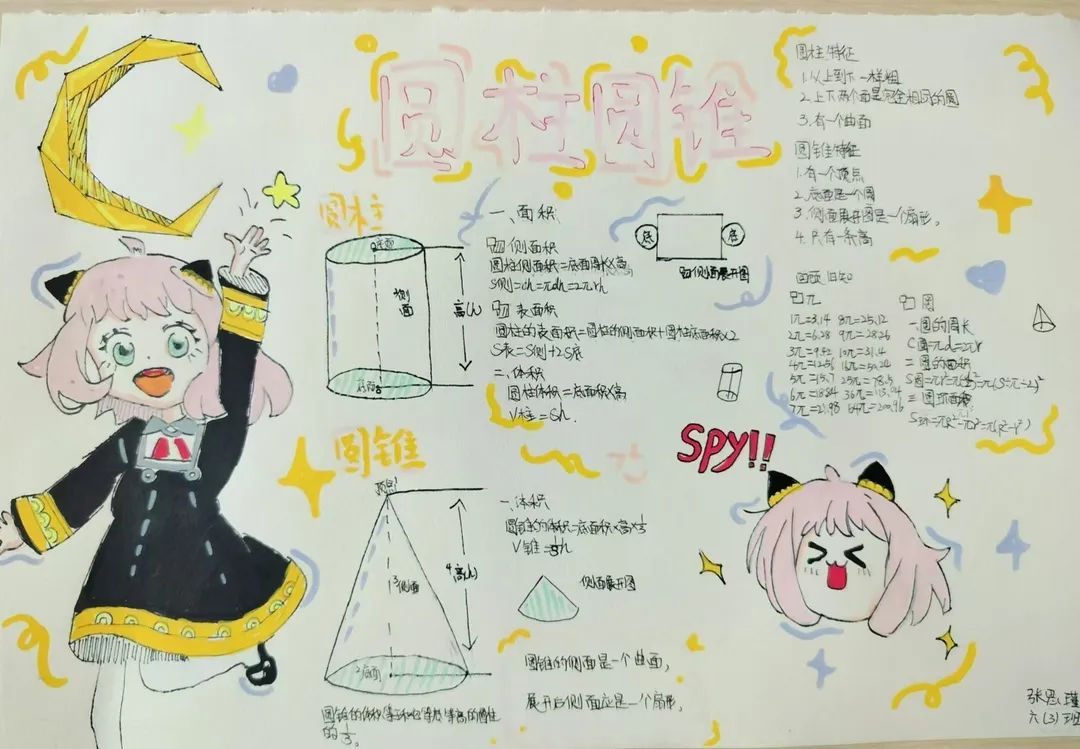 圆柱圆锥
圆柱
底面
侧面
高(h)
底面
一、面积
①侧面积
圆柱侧面积=底面周长×高
S侧=ch=πdh=2πrh
②表面积
圆柱的表面积=圆柱的侧面积+圆柱底面积×2
S表=S侧+2S底
二、体积
圆柱体积=底面积×高
V柱=Sh.
底
底
侧面展开图
圆锥
顶点
3侧面
4高(h)
2底面
圆锥的体积等于和它等底等高的圆柱
的⅓。
一、体积
圆锥的体积=底面积×高×⅓
V锥=⅓h
侧面展开图
圆锥的侧面是一个曲面,
展开后侧面应是一个扇形。
圆柱特征
1.从上到下一样粗
2.上下两个面是完全相同的圆
3.有一个曲面
圆锥特征
1.有一个顶点
2.底面是一个圆
3.侧面展开图是一个扇形。
4.只有一条高
回顾旧知
π
1π=3.14 8π=25.12
2π=6.28 9π=28.26
3π=9.42 10π=31.4
4π=12.56 16π=50.24
5π=15.7 25π=78.5
6π=18.84 36π=113.04
7π=21.98 64π=200.96
圆
一圆的周长
C圆=πd=2πr
二圆的面积
三圆环面积
S环=πR²-πr²=π(R²-r²)
SPY!!
张恩瑾
六(3)班